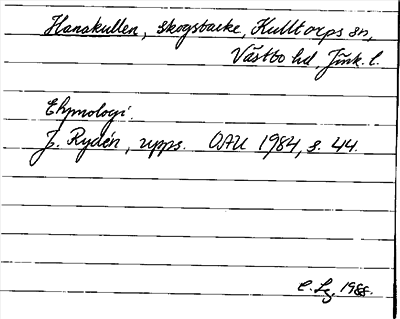 Hanakullen, Skogsbacke, Kulltorps sn,
Västbo hd, Jönk. l.
Etymologi.
J. Rydén, upps. OAU 1984, s. 44.
C. Lg. 1988.